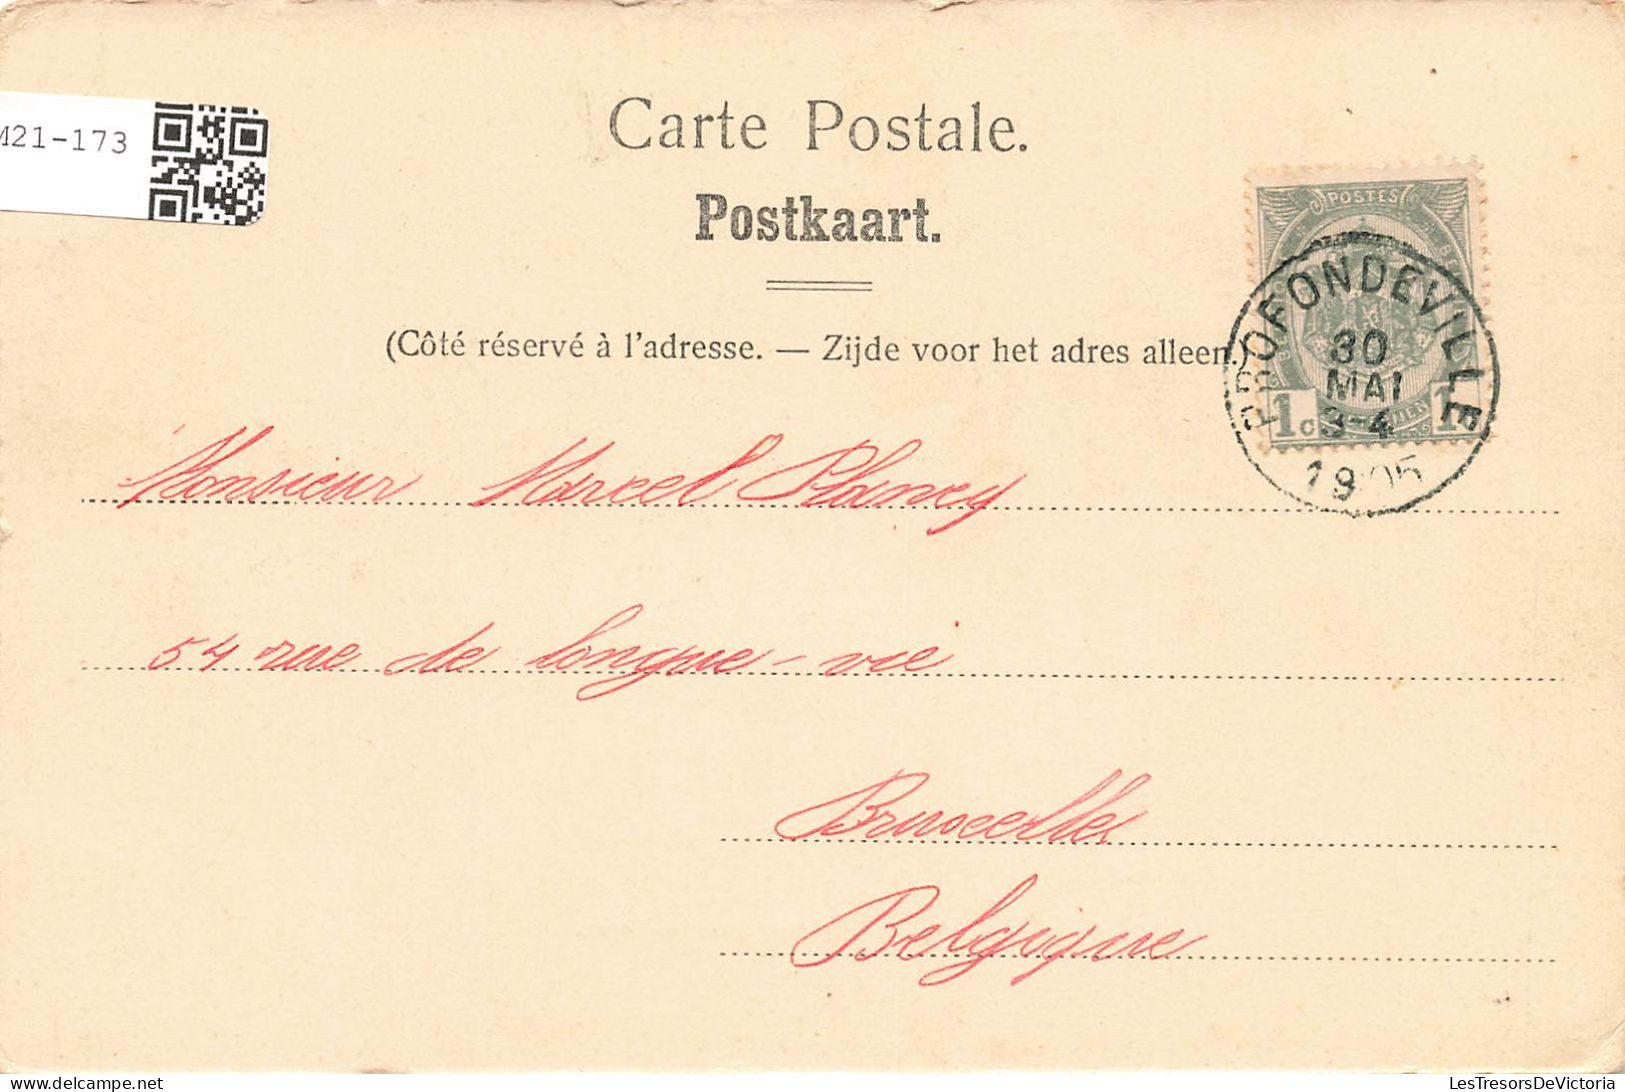 M21-173
Carte Postale.
Postkaart.
(Côté réservé à l'adresse. — Zijde voor het adres alleen.)
POSTES
1c 1c
PROFONDEVILLE
30
MAI
3-4
1905
Monsieur Marcel
54 rue de longue-vie
Bruxelles
Belgique
delcampe.net
LesTresorsDeVictoria